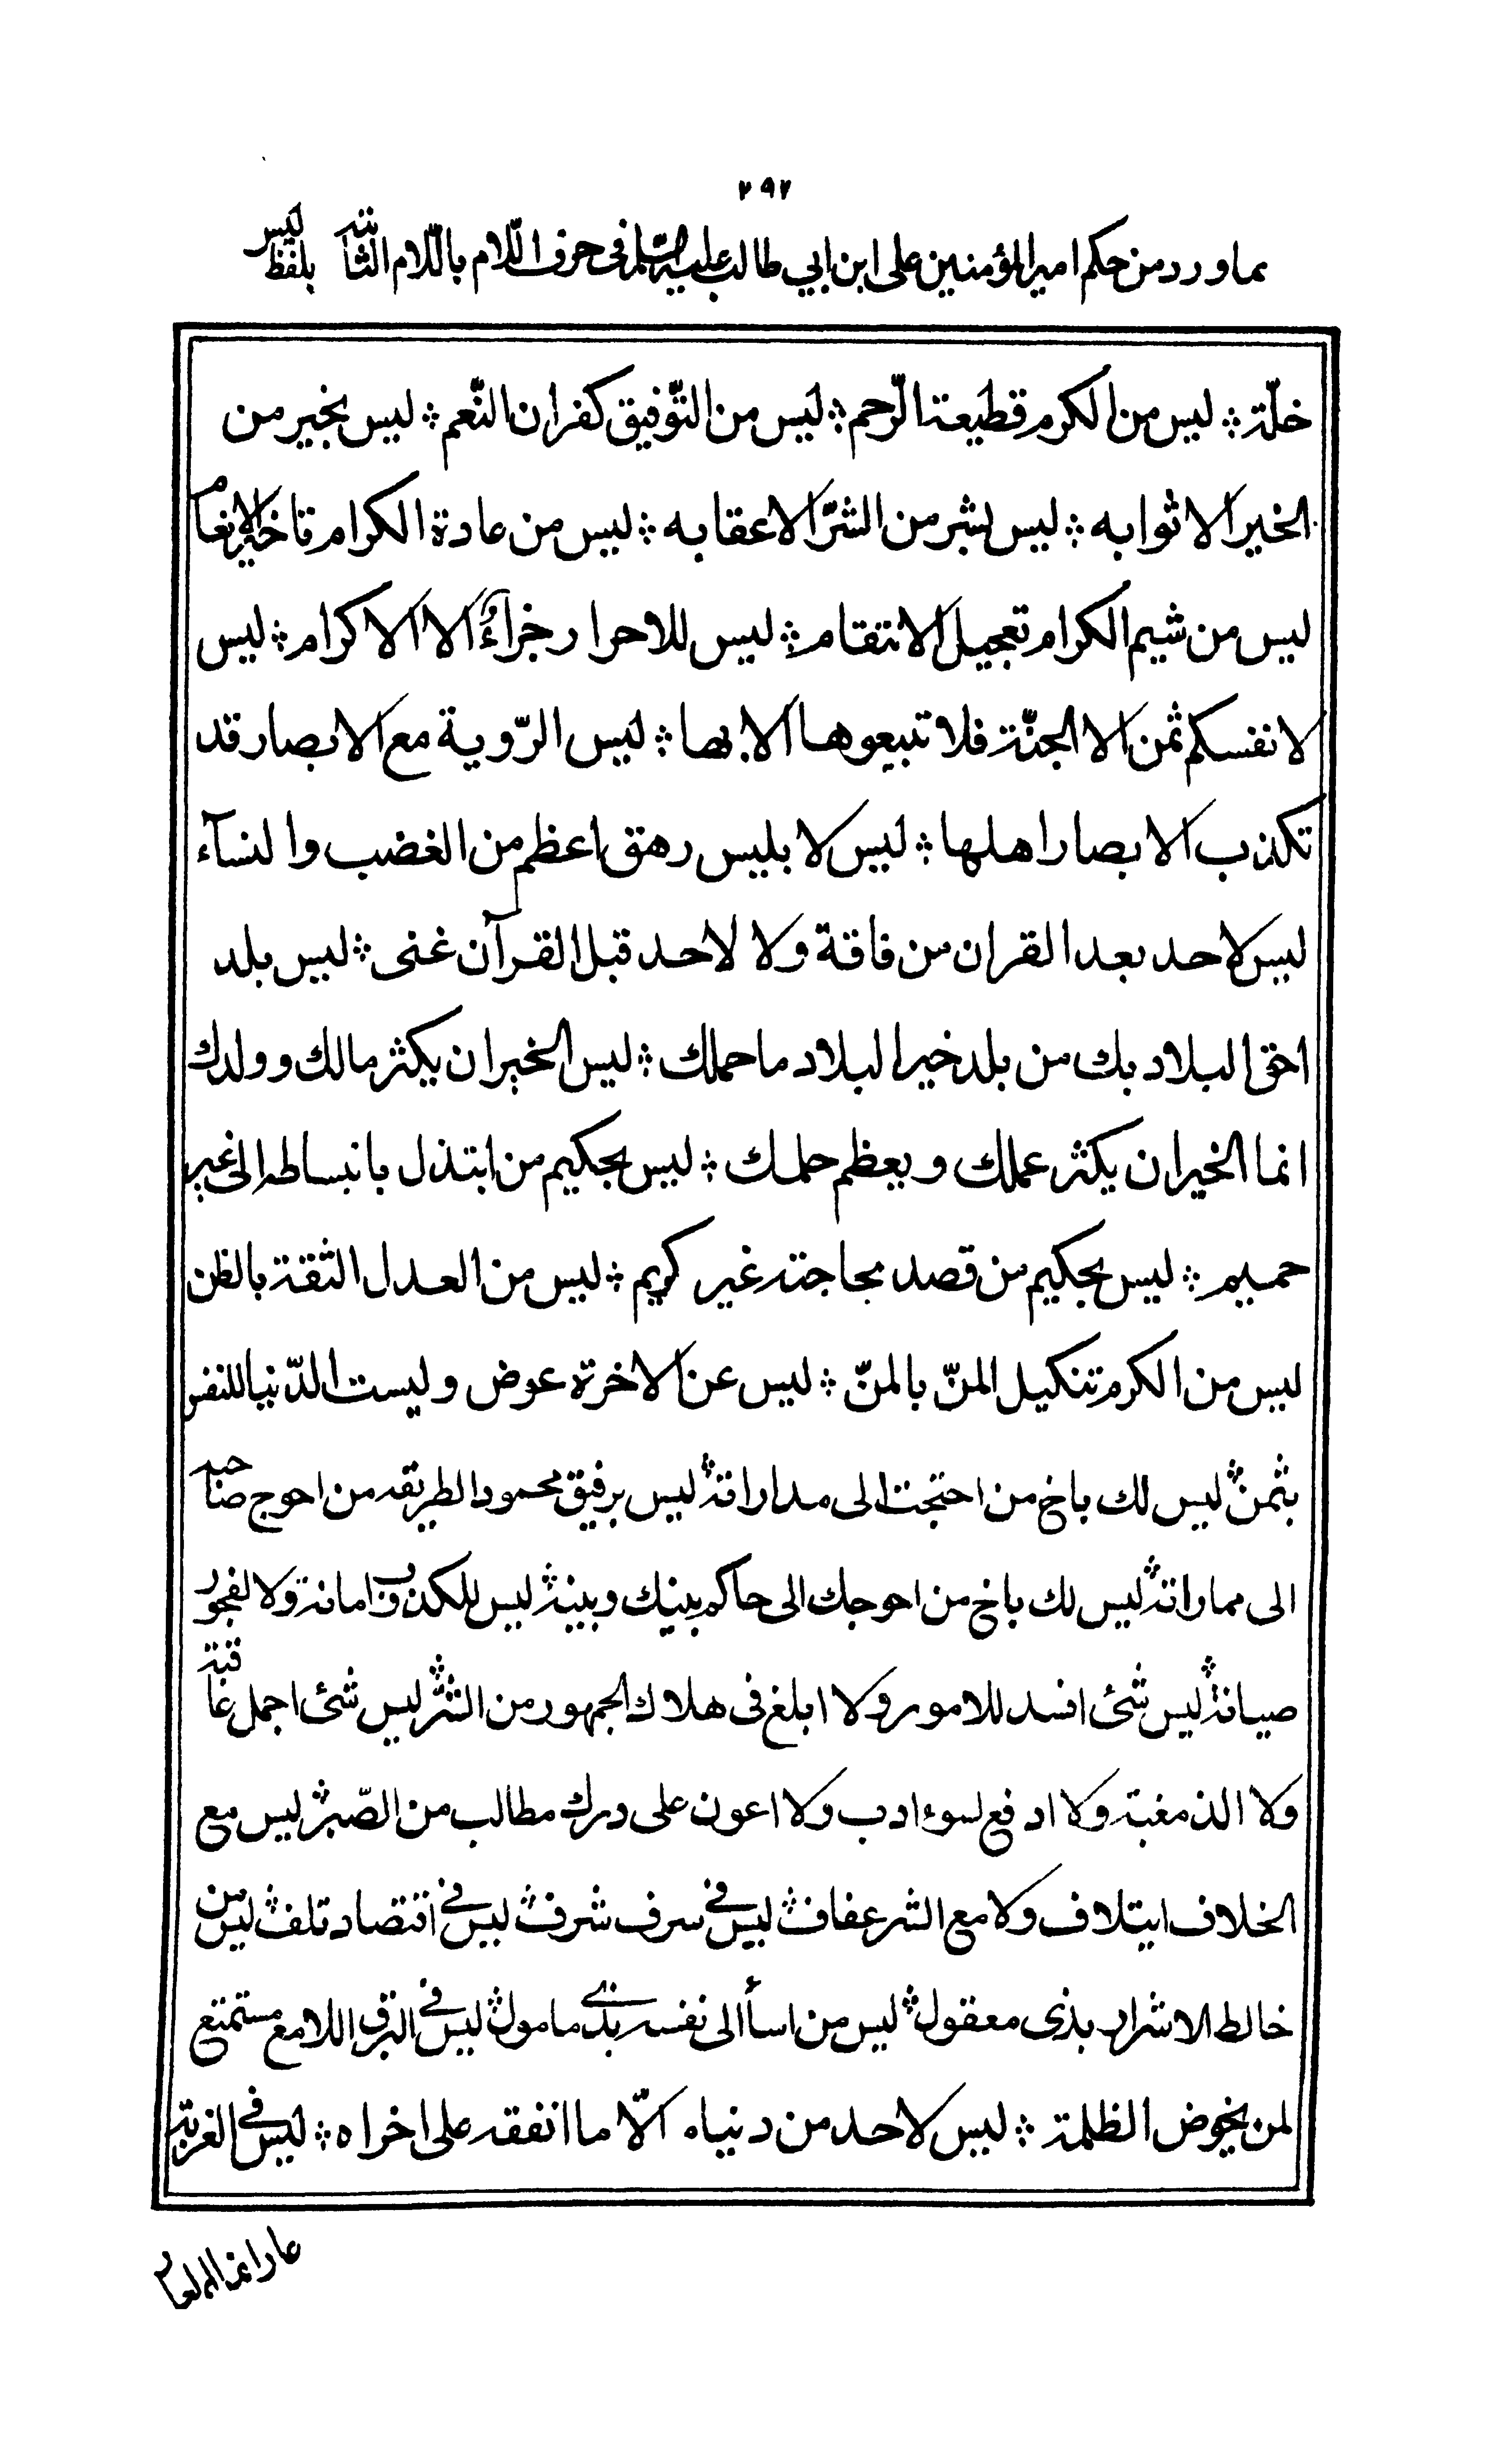 ٢٩٢
مما ورد من حكم امير المؤمنين على ابن ابي طالب عليه السّلم فى حرف اللّام باللّام الثابتة بلفظ ليس
خلّة ؞ ليس من الكرم قطيعة الرّحم ؞ ليس من التّوفيق كفران النّعم ؞ ليس بخير من
الخير الا ثوابه ؞ ليس بشر من الشرّ الا عقابه ؞ ليس من عادة الكرام تاخير الانعام
ليس من شيم الكرام تعجيل الانتقام ؞ ليس للاحرار جزآءٌ الا الاكرام ؞ ليس
لانفسكم ثمن الا الجنّة فلا تبيعوها الا بها ؞ ليس الرّوية مع الابصار قد
تكذب الابصار اهلها ؞ ليس لابليس رهق اعظم من الغضب والنسآء
ليس لاحد بعد القران من فاقة ولا لاحد قبل القرآن غنى ؞ ليس بلد
احق البلاد بك من بلد خير البلاد ما حملك ؞ ليس الخير ان يكثر مالك وولدك
انما الخير ان يكثر عملك ويعظم حملك ؞ ليس بحكيم من ابتذل بانبساطه الى غير
حميم ؞ ليس بحكيم من قصد بحاجته غير كريم ؞ ليس من العدل الثقة بالظن
ليس من الكرم تنكيل المنّ بالمنّ ؞ ليس عن الاخرة عوض وليست الدّنيا للنفس
بثمن ؞ ليس لك باخ من احتجت الى مداراته ؞ ليس برفيق محمود الطريقه من احوج صاحبه
الى مماراته ؞ ليس لك باخ من احوجك الى حاكم بينك وبينه ؞ ليس للكذوب امانة ولا لفجور
صيانة ؞ ليس شئ افسد للامور ولا ابلغ فى هلاك الجمهور من الشر ؞ ليس شئ اجمل عاقبة
ولا الذ مغبة ولا ادفع لسوء ادب ولا اعون على درك مطالب من الصّبر ؞ ليس مع
الخلاف ايتلاف ولا مع الشر عفاف ؞ ليس فى سرف شرف ؞ ليس فى اقتصاد تلف ؞ ليس من
خالط الاشرار بذى معقول ؞ ليس من اسأ الى نفسه بذى مامول ؞ ليس فى البرق اللامع مستمتع
لمن يخوض الظلمة ؞ ليس لاحد من دنياه الّا ما انفقه على اخراه ؞ ليس فى الغربة
عار انما